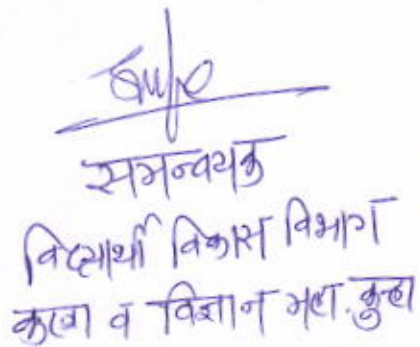 समन्वयक
विद्यार्थी विकास विभाग
कला व विज्ञान महा. कुऱ्हा